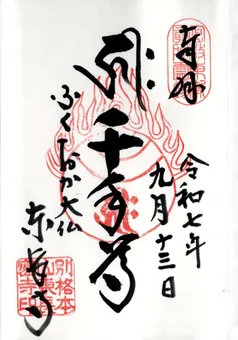 奉拝
令和七年
九月十三日
千手尊
ふくおか大仏
東長寺
別格本
山東長
密寺印